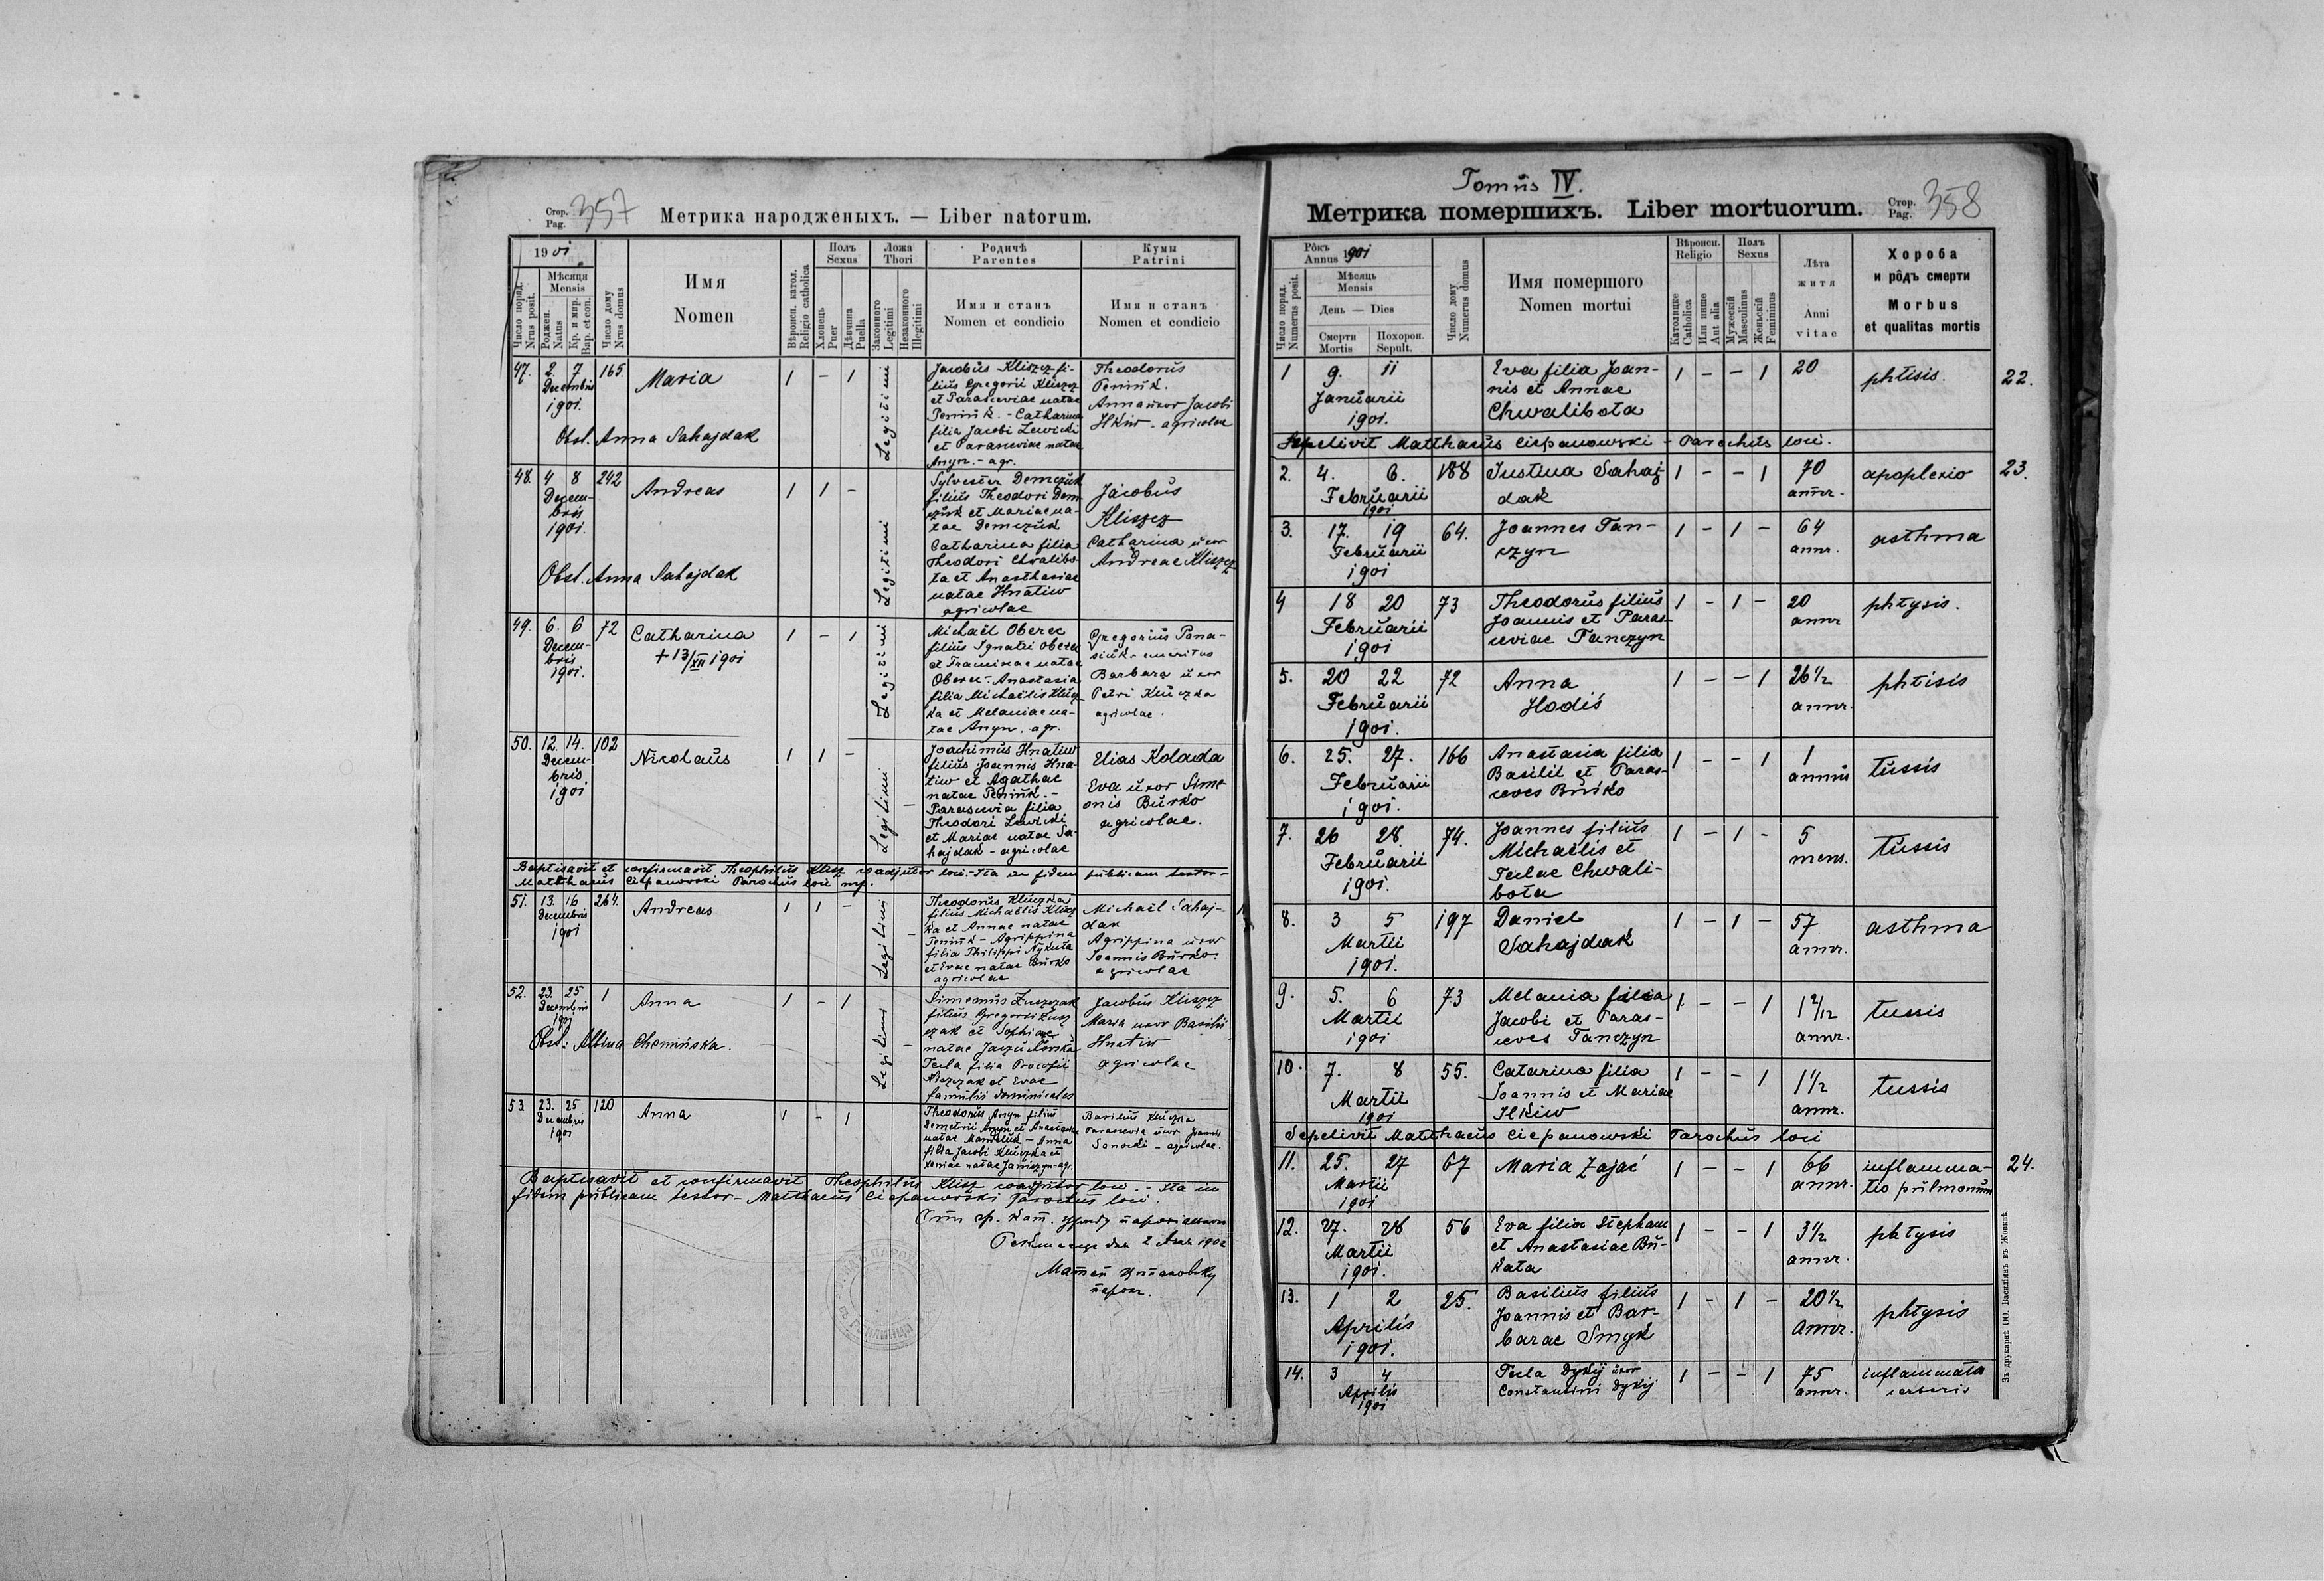 Стор. Pag. 357
Метрика народженыхъ. — Liber natorum.
1901
Число поряд. Nrus posit.
Мѣсяця Mensis
Роджен. Natus
Кр. и мир. Bap. et con.
Число дому Nrus domus
Имя
Nomen
Вѣроисп. катол. Religio catholica
Полъ Sexus
Хлопець Puer
Дѣвчина Puella
Ложа Thori
Законного Legitimi
Незаконного Illegitimi
Родичѣ Parentes
Имя и станъ
Nomen et condicio
Кумы Patrini
Имя и станъ
Nomen et condicio
47. 2. 7 165. Maria 1 - 1 Legitimi
Decembris
1901.
Obst. Anna Sahajdak
Jacobus Kliszcz fi-
lius Gregorii Kliszcz
et Parasceviae natae
- Catharina
filia Jacobi Lewicki
et Parasceviae natae
Anyn. - agr.
Theodorus
Anna uxor Jacobi
Ilkiw - agricolae
48. 4 8 242 Andreas 1 1 - Legitimi
Decem-
bris
1901.
Obst. Anna Sahajdak
Sylvester Demczuk
filius Theodori Dem-
czuk et Mariae na-
tae Demczuk
Catharina filia
Theodori Chwalibo-
ta et Anasthasiae
natae Hnatiw
agricolae
Jacobus
Kliszcz
Catharina uxor
Andreae Kliszcz
49. 6. 6 72 Catharina 1 - 1 Legitimi
+ 13/XII 1901
Decem-
bris
1901.
Michaël Oberec
filius Ignatii Oberec
et natae
Oberec - Anastasia
filia Michaëlis Klucz-
ka et Melaniae na-
tae Anyn. agr.
Gregorius Pona-
Barbara uxor
Petri Kluczka
agricolae.
50. 12. 14. 102 Nicolaus 1 1 - Legitimi
Decem-
bris
1901
Joachimus Hnatiw
filius Joannis Hna-
tiw et Agathae
natae
Parascevia filia
Theodori Lewicki
et Mariae natae Sa-
hajdak - agricolae
Elias Kolada
Eva uxor Sime-
onis Burko
agricolae.
Baptisavit et confirmavit Theophilus Klisz coadjutor loci. - Ita in fidem publicam testor -
Matthaeus Ciepanowski Parochus loci mp.
51. 13. 16 264. Andreas 1 1 - Legitimi
Decembris
1901
Theodorus Kluczka
filius Michaëlis Klucz-
ka et Annae natae
- Agrippina
filia Philippi Nykuta
et Evae natae Burko
agricolae
Michaël Sahaj-
dak
Agrippina uxor
Joannis Burko.
agricolae
52. 23. 25 1 Anna 1 - 1 Legitimi
Decembris
1901
Obst: Albina
Simeonus
filius Gregorii
et Sophiae
natae
Tecla filia Procopii
et Evae
famulii dominicales
Jacobus Kliszcz
Maria uxor Basilii
Hnatiw
agricolae
53 23. 25 120 Anna 1 - 1
Decembris
1901
Theodorus Anyn filius
Demetrii Anyn et Anastasiae
natae - Anna
filia Jacobi Kluczka et
Xeniae natae - agr.
Basilius Kluczka
Parascevia uxor Joannis
Sanocki - agricolae.
Baptisavit et confirmavit Theophilus Klisz coadjutor loci. - Ita in
fidem publicam testor - Matthaeus Ciepanowski Parochus loci.
Tomus IV.
Метрика помершихъ. Liber mortuorum.
Стор. Pag. 358
Рôкъ Annus 1901
Число поряд. Numerus posit.
Мѣсяць Mensis
День — Dies
Смерти Mortis
Похорон. Sepult.
Число дому Numerus domus
Имя помершого
Nomen mortui
Вѣроисп. Religio
Католицке Catholica
Или инше Aut alia
Полъ Sexus
Мужескій Masculinus
Женьскій Femininus
Лѣта житя
Anni vitae
Хороба
и рôдъ смерти
Morbus
et qualitas mortis
1 9. 11 Eva filia Joan- 1 - - 1 20 phtisis. 22.
Januarii nis et Annae
1901. Chwalibota
Sepelivit Matthaeus Ciepanowski - Parochus loci.
2. 4. 6. 188 Justina Sahaj- 1 - - 1 70 apoplexio 23.
Februarii dak annr.
1901
3. 17. 19 64. Joannes Pan- 1 - 1 - 64 asthma
Februarii czyn annr.
1901
4 18 20 73 Theodorus filius 1 - 1 - 20 phtysis.
Februarii Joannis et Paras- annr
1901 ceviae Panczyn
5. 20 22 72 Anna 1 - - 1 26 1/2 phtisis
Februarii Hodiś annr.
1901.
6. 25. 27. 166 Anastasia filia 1 - - 1 1 tussis
Februarii Basilii et Paras- annus
1901. ceves Burko
7. 26 28. 74. Joannes filius 1 - 1 - 5 tussis
Februarii Michaëlis et mens.
1901. Teclae Chwali-
bota
8. 3 5 197 Daniel 1 - 1 - 57 asthma
Martii Sahajdak annr.
1901.
9. 5. 6 73 Melania filia 1. - - 1 1 2/12 tussis
Martii Jacobi et Paras- annr.
1901 ceves Panczyn
10. 7. 8 55. Catarina filia 1 - - 1 1 1/2 tussis
Martii Joannis et Mariae annr.
1901 Ilkiw
Sepelivit Matthaeus Ciepanowski Parochus loci
11. 25. 27 67 Maria Zając 1 - - 1 66 inflamma- 24.
Martii annr. tio pulmonum
1901
12. 27. 28 56 Eva filia Stephani 1 - - 1 3 1/2 phtysis
Martii et Anastasiae Bu- annr.
1901. kata
13. 1 2 25. Basilius filius 1 - 1 - 20 1/2 phtysis
Aprilis Joannis et Bar- annr.
1901. barae Smyk
14. 3 4 Tecla Dykij uxor 1 - - 1 75
Aprilis Constantini Dykij annr.
1901
Зъ друкарнѣ ОО. Василіянъ въ Жовквѣ.